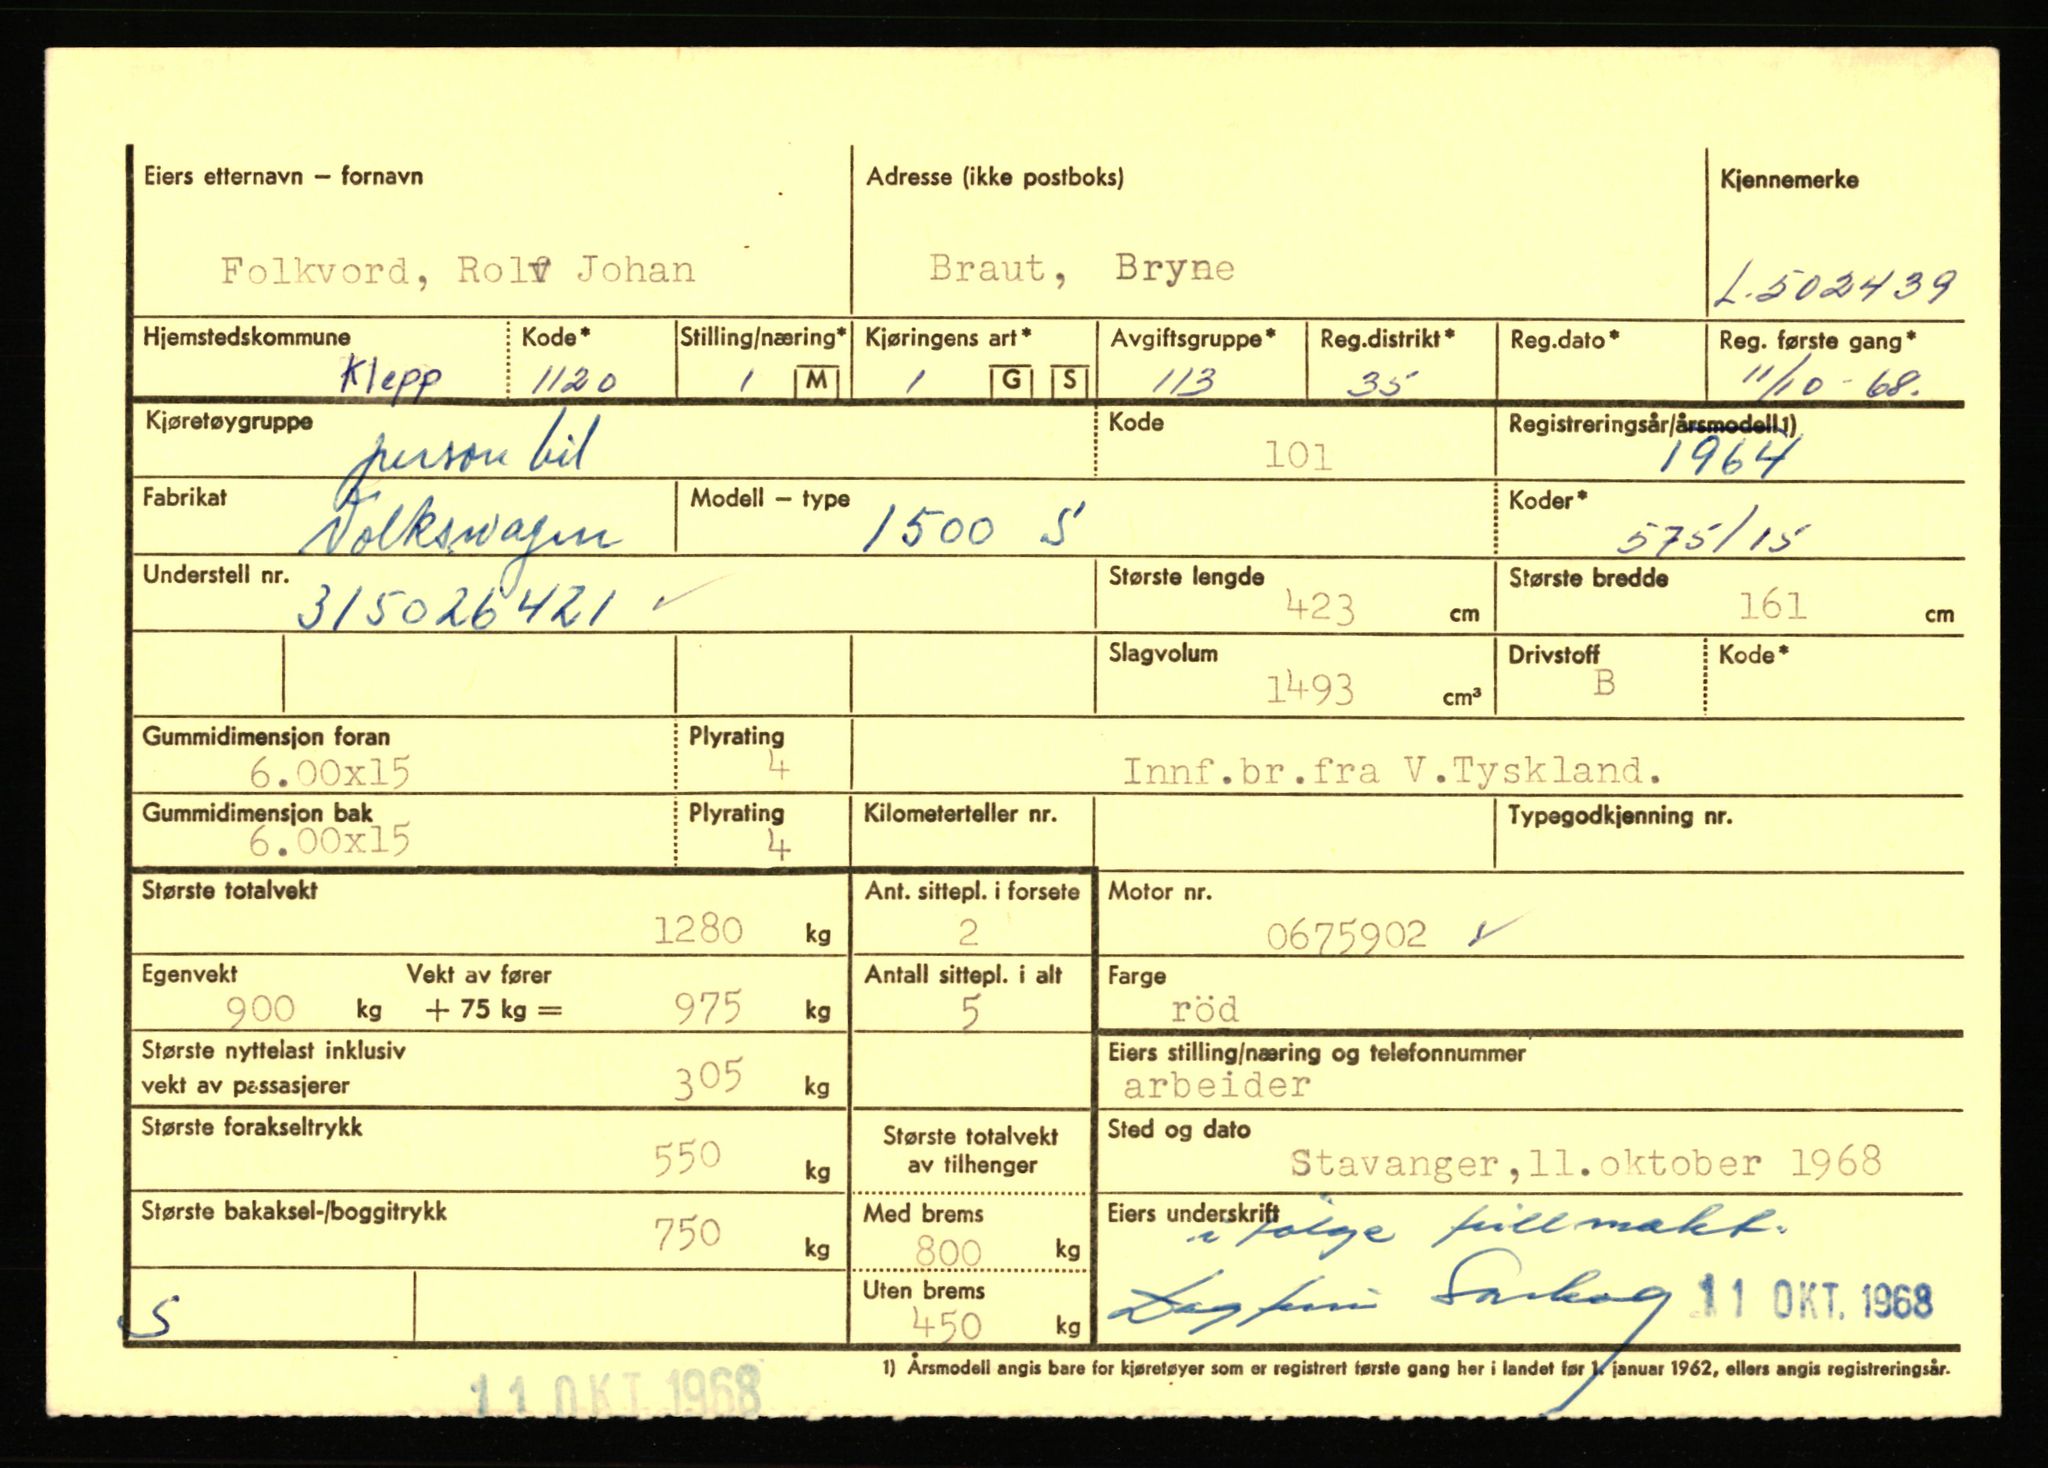 Eiers etternavn – fornavn Adresse (ikke postboks) Kjennemerke
Folkvord, Rolf Johan Braut, Bryne L-502439
Hjemstedskommune Kode* Stilling/næring* Kjøringens art* Avgiftsgruppe* Reg.distrikt* Reg.dato* Reg. første gang*
Klepp 1120 1 M 1 G S 113 35 11/10-68.
Kjøretøygruppe Kode Registreringsår/årsmodell 1)
person bil 101 1964
Fabrikat Modell – type Koder*
Volkswagen 1500 S 575/15
Understell nr. Største lengde Største bredde
315026421 ✓ 423 cm 161 cm
Slagvolum Drivstoff Kode*
1493 cm³ B
Gummidimensjon foran Plyrating
6.00x15 4 Innf.br.fra V.Tyskland.
Gummidimensjon bak Plyrating Kilometerteller nr. Typegodkjenning nr.
6.00x15 4
Største totalvekt Ant. sittepl. i forsete Motor nr.
1280 kg 2 0675902 ✓
Egenvekt Vekt av fører Antall sittepl. i alt Farge
900 kg + 75 kg = 975 kg 5 röd
Største nyttelast inklusiv Eiers stilling/næring og telefonnummer
vekt av passasjerer 305 kg arbeider
Største forakseltrykk Største totalvekt Sted og dato
550 kg av tilhenger Stavanger,11.oktober 1968
Største bakaksel-/boggitrykk Med brems Eiers underskrift
750 kg 800 kg i følge fullmakt.
Uten brems
S 450 kg 11 OKT. 1968
1) Årsmodell angis bare for kjøretøyer som er registrert første gang her i landet før 1. januar 1962, ellers angis registreringsår.
11 OKT. 1968